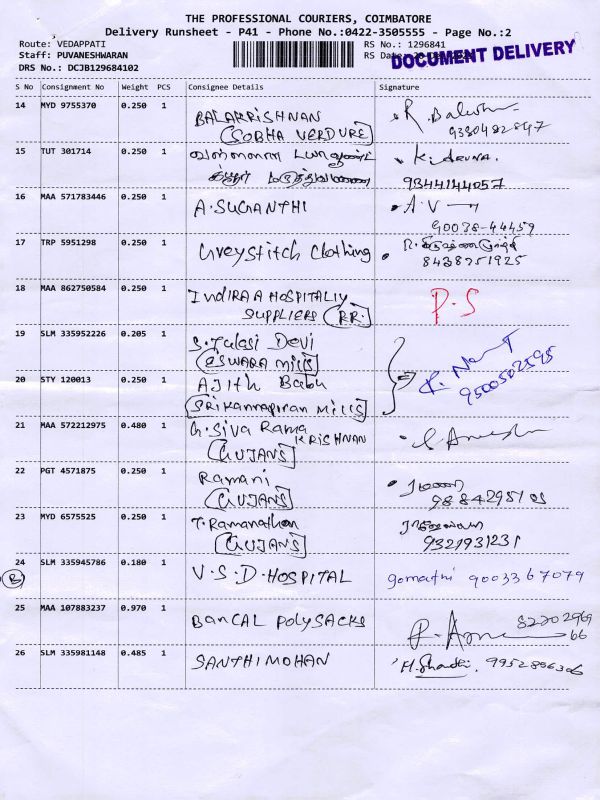 THE PROFESSIONAL COURIERS, COIMBATORE
Delivery Runsheet - P41 - Phone No.:0422-3505555 - Page No.:2
Route: VEDAPPATI
RS No.: 1296841
Staff: PUVANESHWARAN
RS Date:
DOCUMENT DELIVERY
DRS No.: DCJB129684102
S No Consignment No Weight PCS Consignee Details Signature
14 MYD 9755370 0.250 1 BALAKRISHNAN
(SOBHA VERDURE)
15 TUT 301714 0.250 1
9344144057
16 MAA 571783446 0.250 1 A.SUGANTHI A.V
90038-44459
17 TRP 5951298 0.250 1 Greystitch Clothing
8438951925
18 MAA 862750584 0.250 1 INDIRAA HOSPITALIY P.S
SUPPLIERS (RR)
19 SLM 335952226 0.205 1 S.Tulasi Devi
(ESWARA Mills)
20 STY 120013 0.250 1 AJith Babu
9500502595
(SRIKannapiran Mills)
21 MAA 572212975 0.480 1 G.Siva Rama
KRISHNAN
(GUJANS)
22 PGT 4571875 0.250 1 Ramani
(GUJANS)
23 MYD 6575525 0.250 1 T.Ramanathan
(GUJANS) 9321931231
24 SLM 335945786 0.180 1 V.S.D.HOSPITAL gomathi 9003367079
(B)
25 MAA 107883237 0.970 1 BANCAL POLYSACKS 82202969
66
26 SLM 335981148 0.485 1 SANTHIMOHAN 9952806306